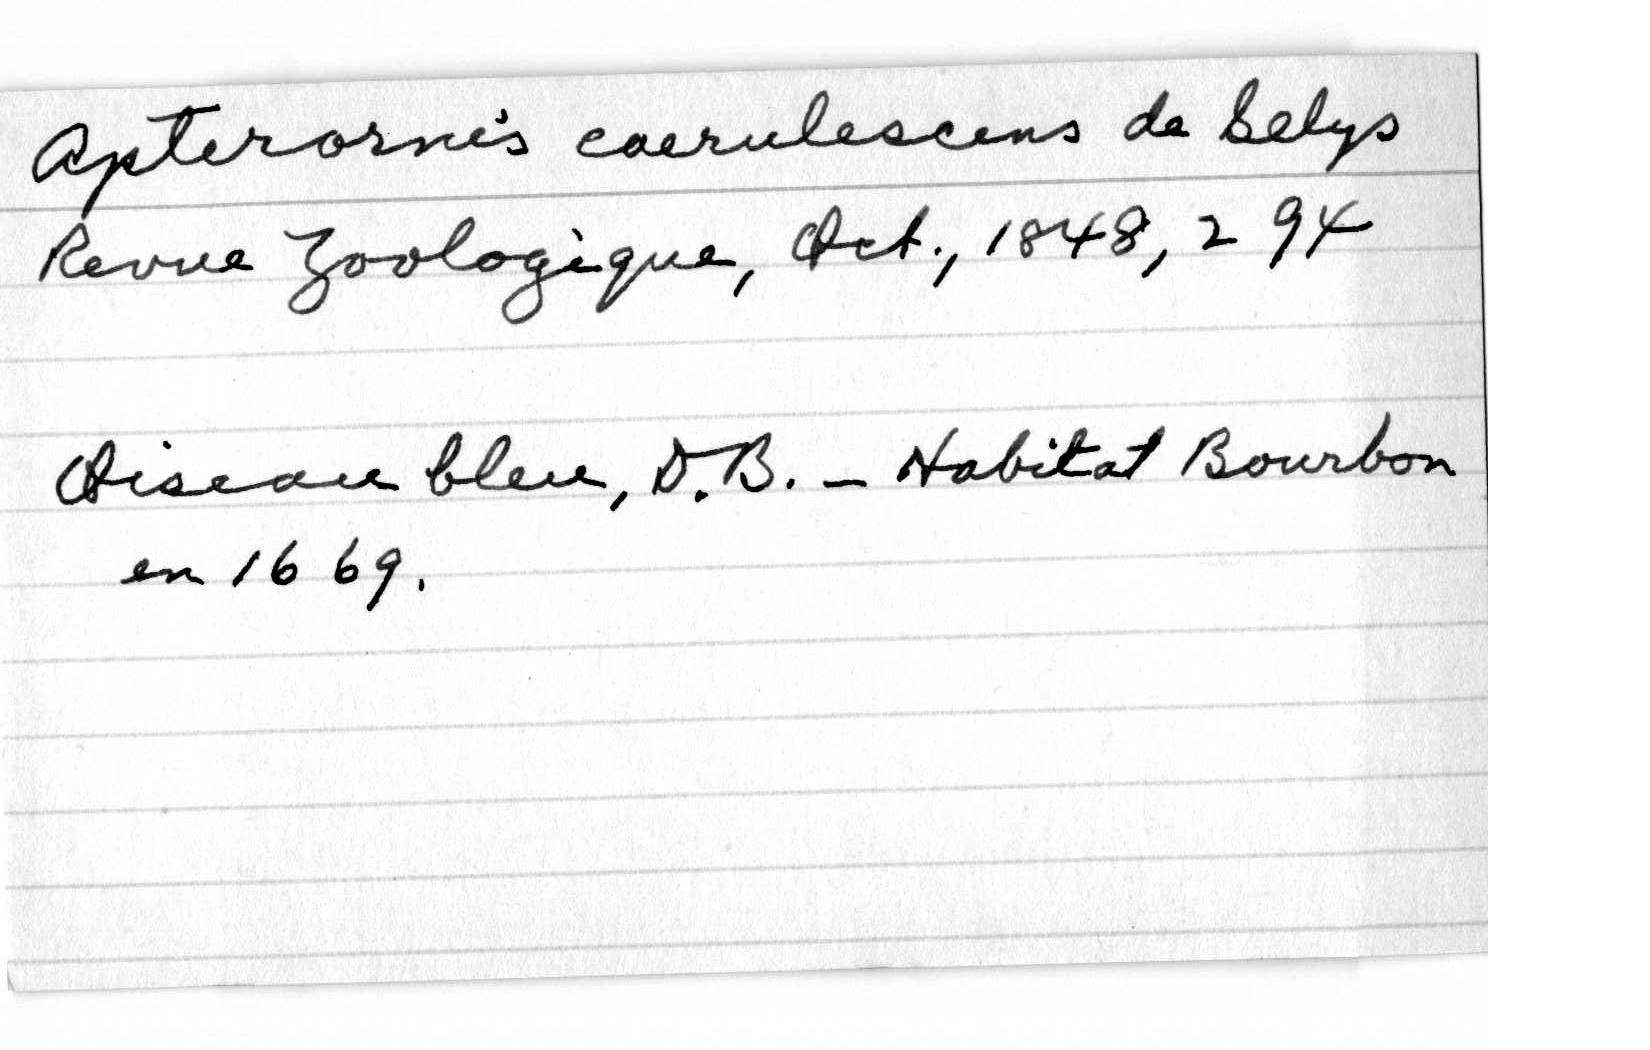 Apterornis caerulescens de Selys
Revue Zoologique, Oct., 1848, 294
Oiseau bleu, D.B. - Habitat Bourbon
en 1669.